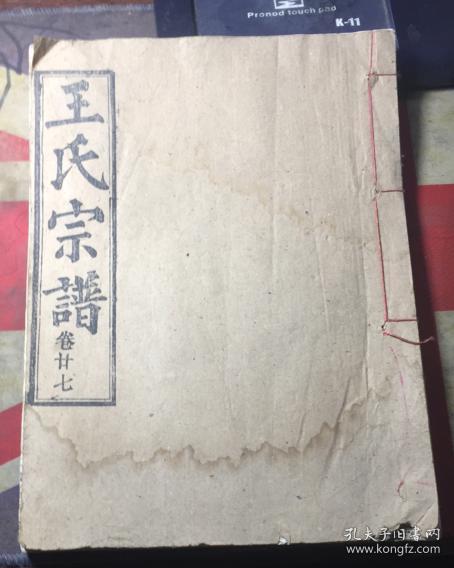 Pronod touch pad
K-11
王氏宗譜
卷廿七
孔夫子旧书网
www.kongfz.com